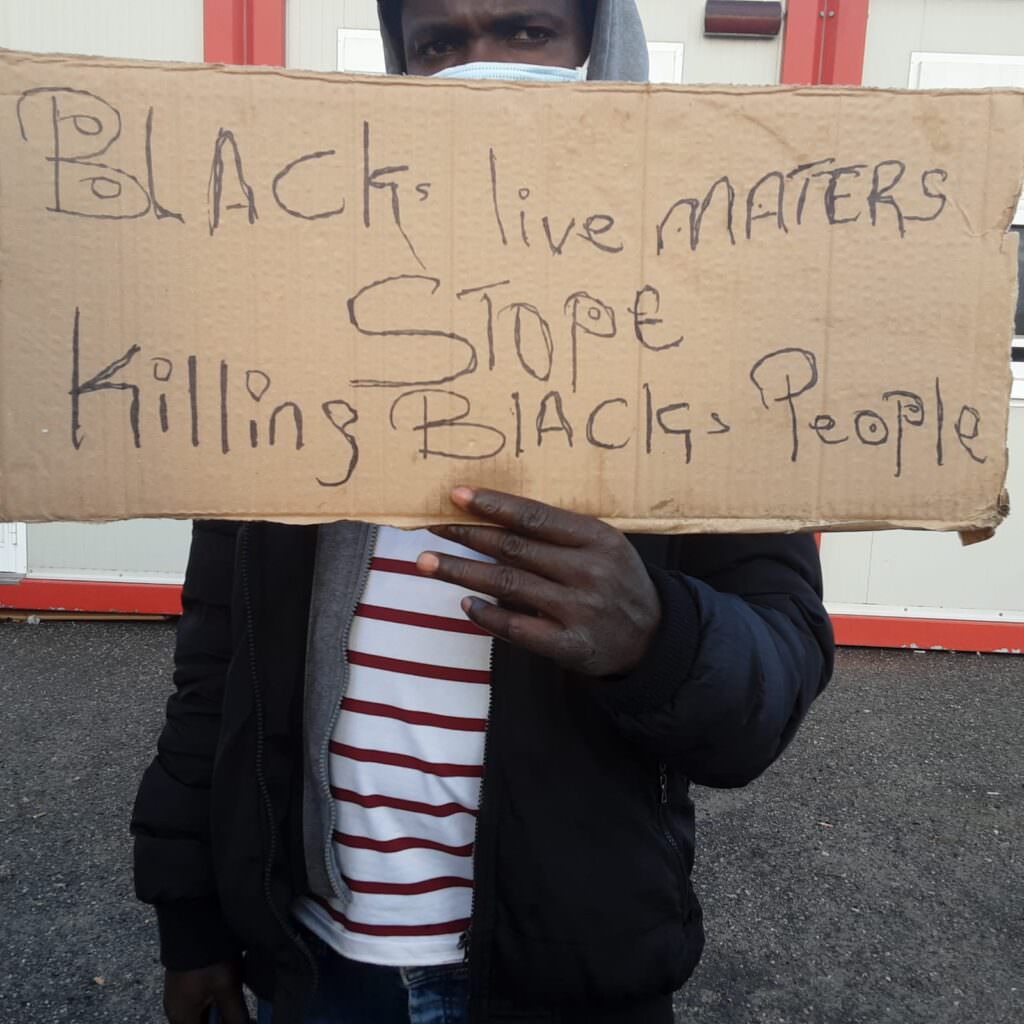 BLACks live MATERS
STOPE
Killing BlACks People